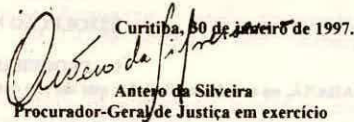 Curitiba, 30 de janeiro de 1997.
Antero da Silveira
Procurador-Geral de Justiça em exercício